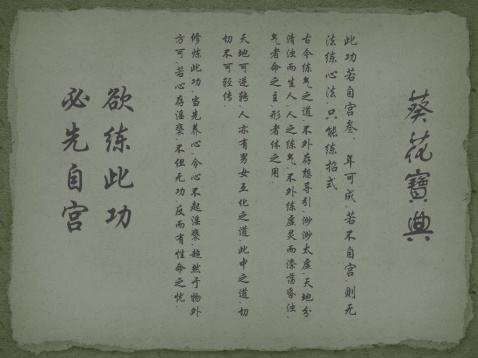 葵花寶典
此功若自宫叁年可成.若不自宫.則无
法练心法.只能练招式
古今练气之道.不外存想导引.渺渺太虚.天地分
清浊而生人.人之练气.不外练虚灵而涤荡昏浊.
气者命之主.形者体之用
天地可逆转.人亦有男女互化之道.此中之道.切
切不可轻传.
修炼此功.当先养心.令心不起淫亵.超然于物外
方可.若心存淫亵.不但无功.反而有性命之忧.
欲练此功
必先自宫